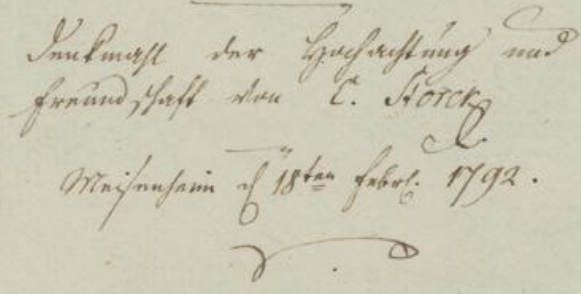 Denkmahl der Hochachtung und
Freundschaft von C. Storck
Meisenheim d 18ten Febrl. 1792.